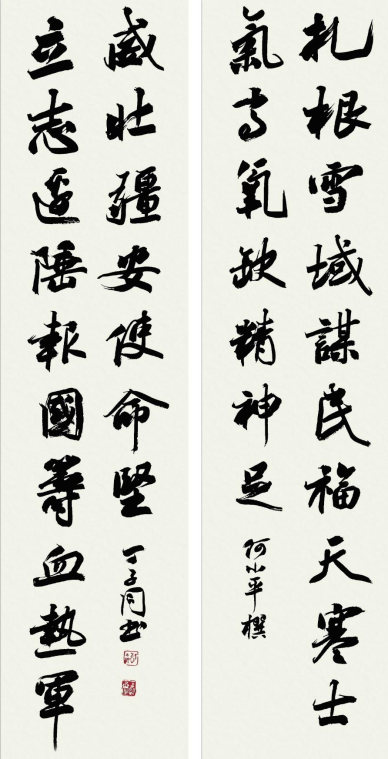 扎根雪域謀民福天寒士
氣高氧缺精神足
何小平撰
立志邊陲報國籌血熱軍
威壯疆安使命堅
丁子同书